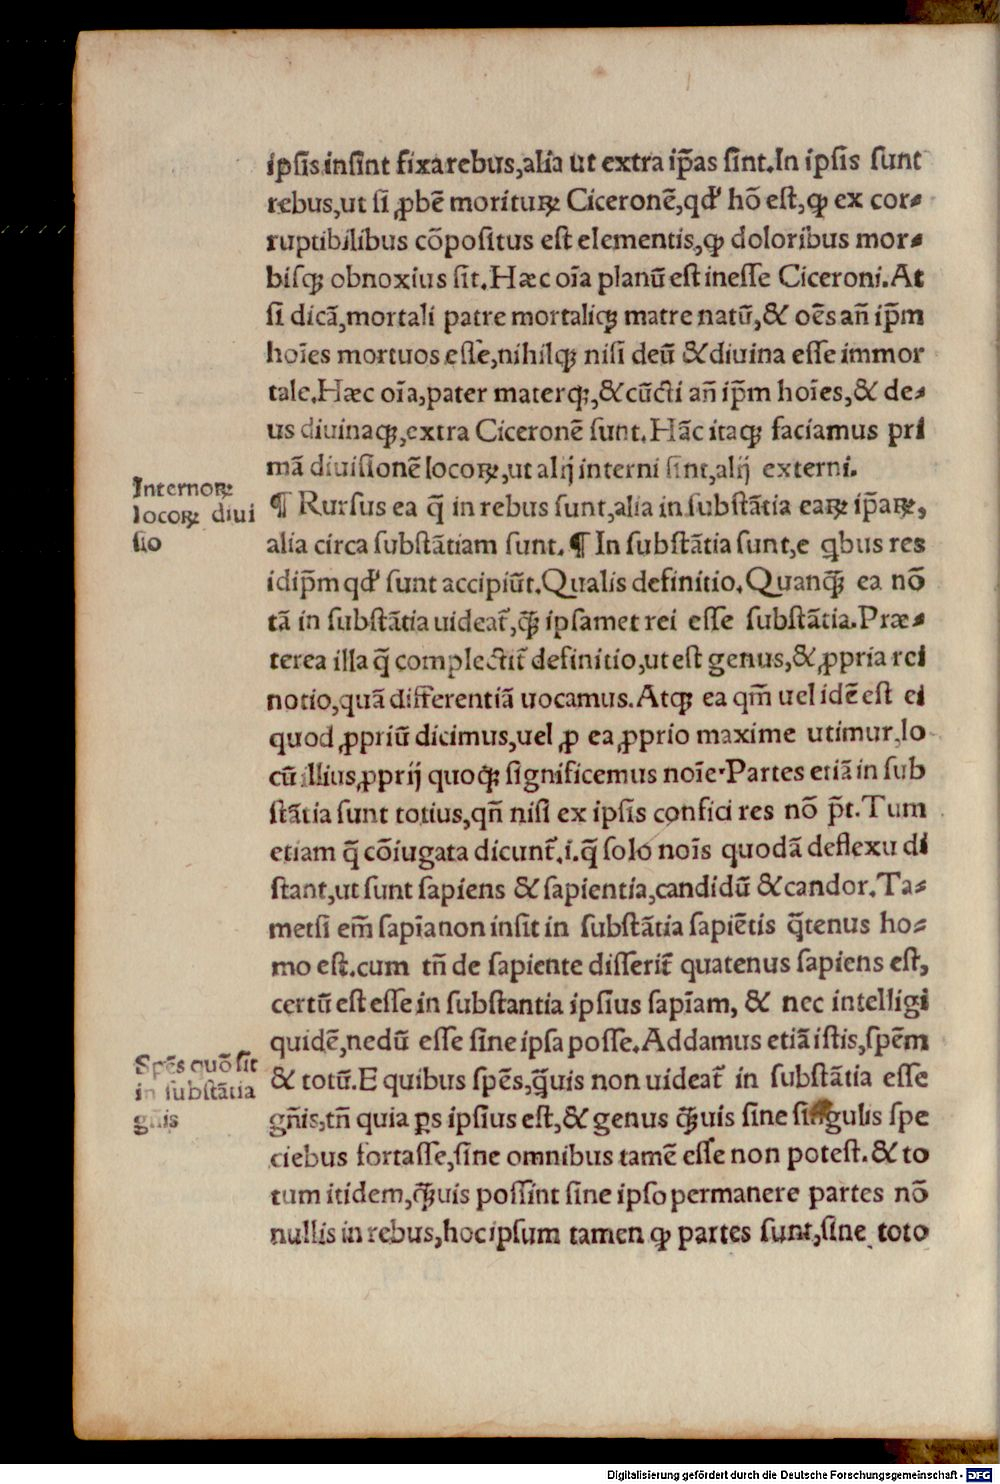 ipsis insint fixa rebus,alia ut extra ip̃as sint.In ipsis sunt
rebus,ut si ꝓbē morituꝝ Ciceronē,qd' hō est,ꝙ ex cor⸗
ruptibilibus cōpositus est elementis,ꝙ doloribus mor⸗
bisqꝫ obnoxius sit.Hæc oīa planū est inesse Ciceroni.At
si dicā,mortali patre mortaliqꝫ matre natū,& oēs añ ip̃m
hoīes mortuos esse,nihilqꝫ nisi deū & diuina esse immor
tale.Hæc oīa,pater materqꝫ,& cūcti añ ip̃m hoīes,& de⸗
us diuinaqꝫ,extra Ciceronē sunt.Hāc itaqꝫ faciamus pri
mā diuisionē locoꝝ,ut alij interni sint,alij externi.
Internoꝝ
locoꝝ diui
sio
¶ Rursus ea q̃ in rebus sunt,alia in substātia eaꝝ ip̃aꝝ,
alia circa substātiam sunt.¶ In substātia sunt,e qbus res
idip̃m qd' sunt accipiūt.Qualis definitio.Quanqꝫ̃ ea nō
tā in substātia uideat̃,qꝫ̃ ipsamet rei esse substātia.Præ⸗
terea illa q̃ complectit̃ definitio,ut est genus,& ꝓpria rei
notio,quā differentiā uocamus.Atqꝫ ea qm̃ uel idē est ei
quod ꝓpriū dicimus,uel ꝓ ea ꝓprio maxime utimur,lo
cū illius ꝓprij quoqꝫ̃ significemus noīe.Partes etiā in sub
stātia sunt totius,qñ nisi ex ipsis confici res nō p̃t.Tum
etiam q̃ cōiugata dicunt̃.i.q̃ solo noīs quodā deflexu di
stant,ut sunt sapiens & sapientia,candidū & candor.Ta⸗
metsi em̃ sapīa non insit in substātia sapiētis q̃tenus ho⸗
mo est.cum tñ de sapiente disserit̃ quatenus sapiens est,
certū est esse in substantia ipsius sapīam, & nec intelligi
quidē,nedū esse sine ipsa posse.Addamus etiā istis,spēm
Spēs quō sit
in substātia
gñis
& totū.E quibus spēs,q̃uis non uideat̃ in substātia esse
gñis,tñ quia ꝑs ipsius est,& genus qꝫ̃uis sine singulis spe
ciebus fortasse,sine omnibus tamē esse non potest.& to
tum itidem,qꝫ̃uis possint sine ipso permanere partes nō
nullis in rebus,hoc ipsum tamen ꝙ partes sunt,sine toto
Digitalisierung gefördert durch die Deutsche Forschungsgemeinschaft - DFG